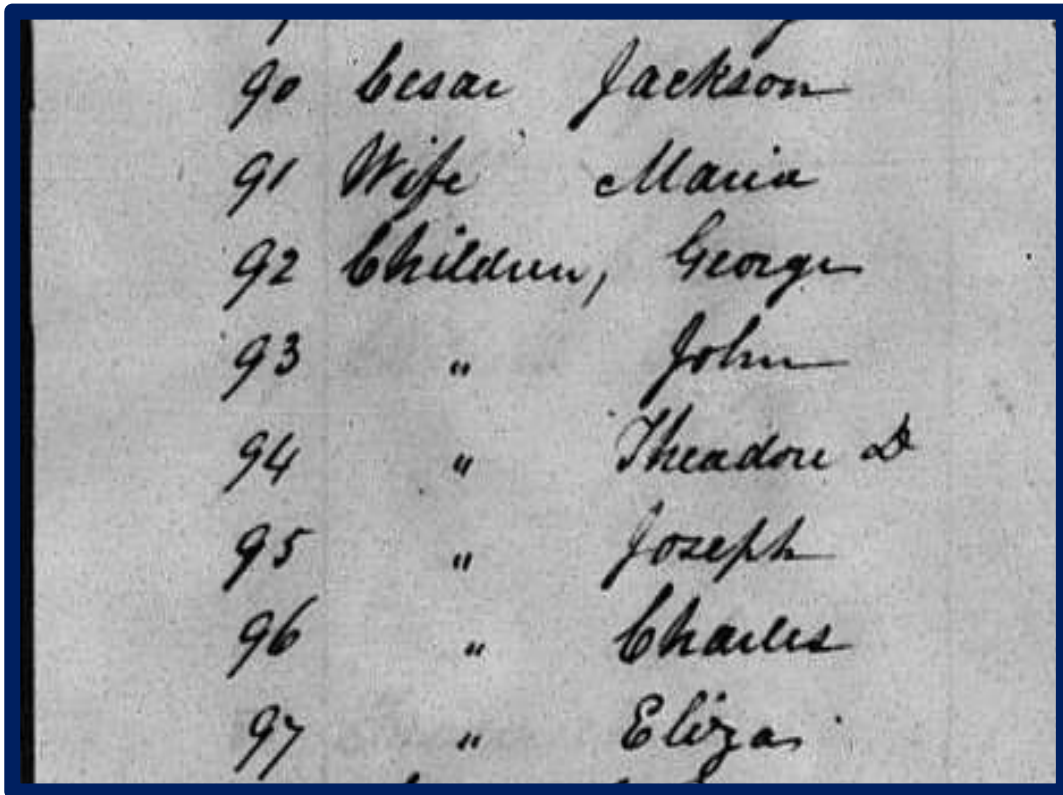 90 Cesar Jackson
91 Wife Maria
92 Children, George
93 " John
94 " Theadore D
95 " Joseph
96 " Charles
97 " Eliza